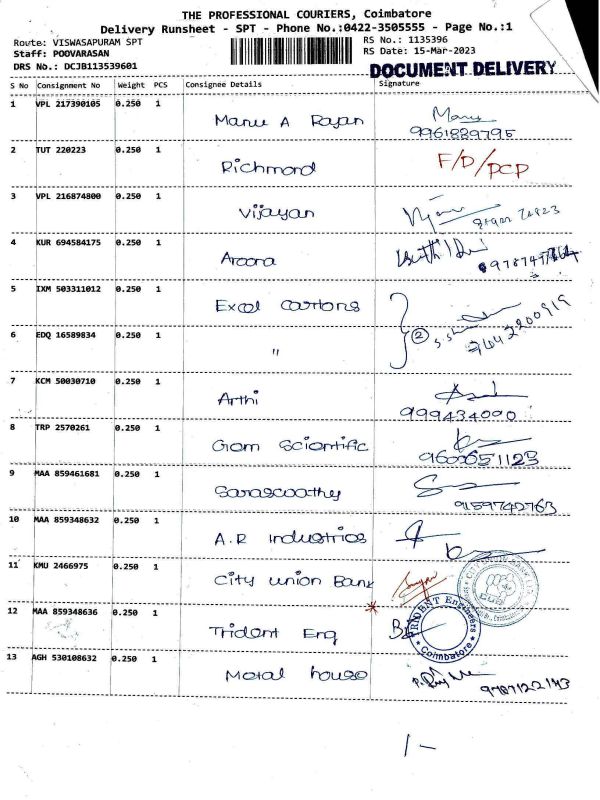 THE PROFESSIONAL COURIERS, Coimbatore
Delivery Runsheet - SPT - Phone No.:0422-3505555 - Page No.:1
Route: VISWASAPURAM SPT
RS No.: 1135396
Staff: POOVARASAN
RS Date: 15-Mar-2023
DRS No.: DCJB113539601
DOCUMENT DELIVERY
S No Consignment No Weight PCS Consignee Details Signature
1 VPL 217390105 0.250 1 Manu A Rajan
2 TUT 220223 0.250 1 Richmond F/D/PCP
3 VPL 216874800 0.250 1 Vijayan
4 KUR 694584175 0.250 1
5 IXM 503311012 0.250 1 Excel Cartons
6 EDQ 16589834 0.250 1 " 2
7 KCM 50030710 0.250 1 Arthi
999434090
8 TRP 2570261 0.250 1 Gem Scientific
9 MAA 859461681 0.250 1
9159742763
10 MAA 859348632 0.250 1 A.R industries
11 KMU 2466975 0.250 1 City union Bank
12 MAA 859348636 0.250 1 Trident Eng
TRIDENT Engineers
Coimbatore
13 AGH 530108632 0.250 1 Metal house
9787122143
1 -